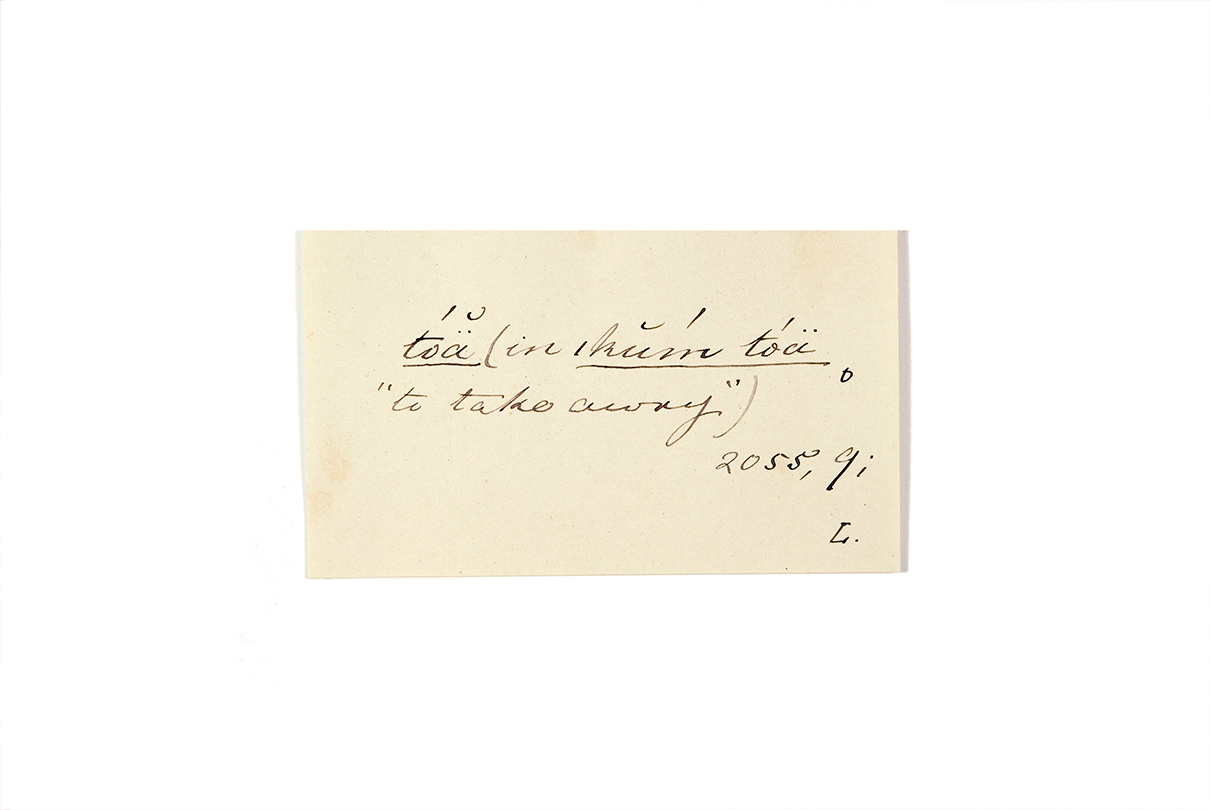 tóä̆ (in ǀkŭ́m tóä
"to take away")
2055, 9;
L.